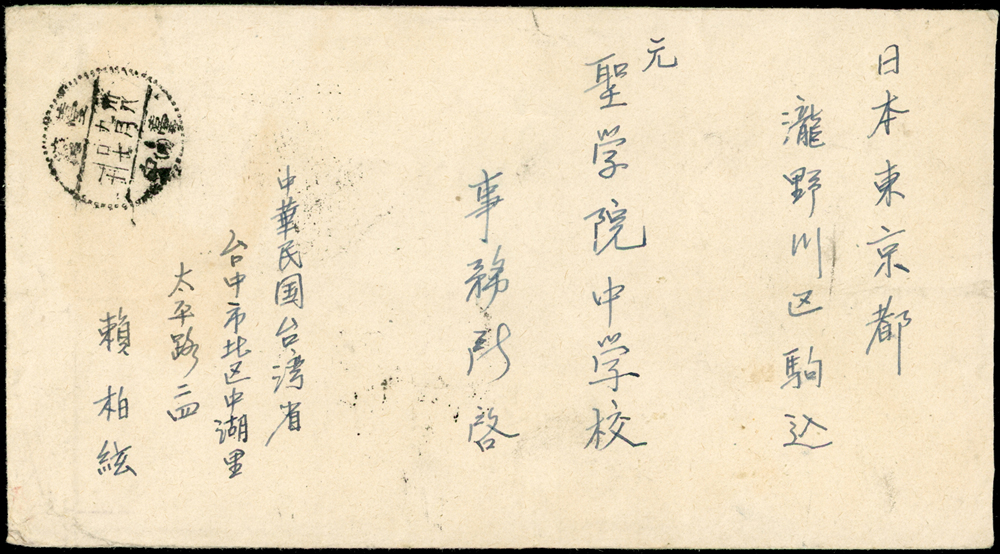 日本東京都
瀧野川区駒込
元
聖学院中学校
事務所啓
中華民国台湾省
台中市北区中湖里
太平路二四
賴柏絃
臺中
臺灣